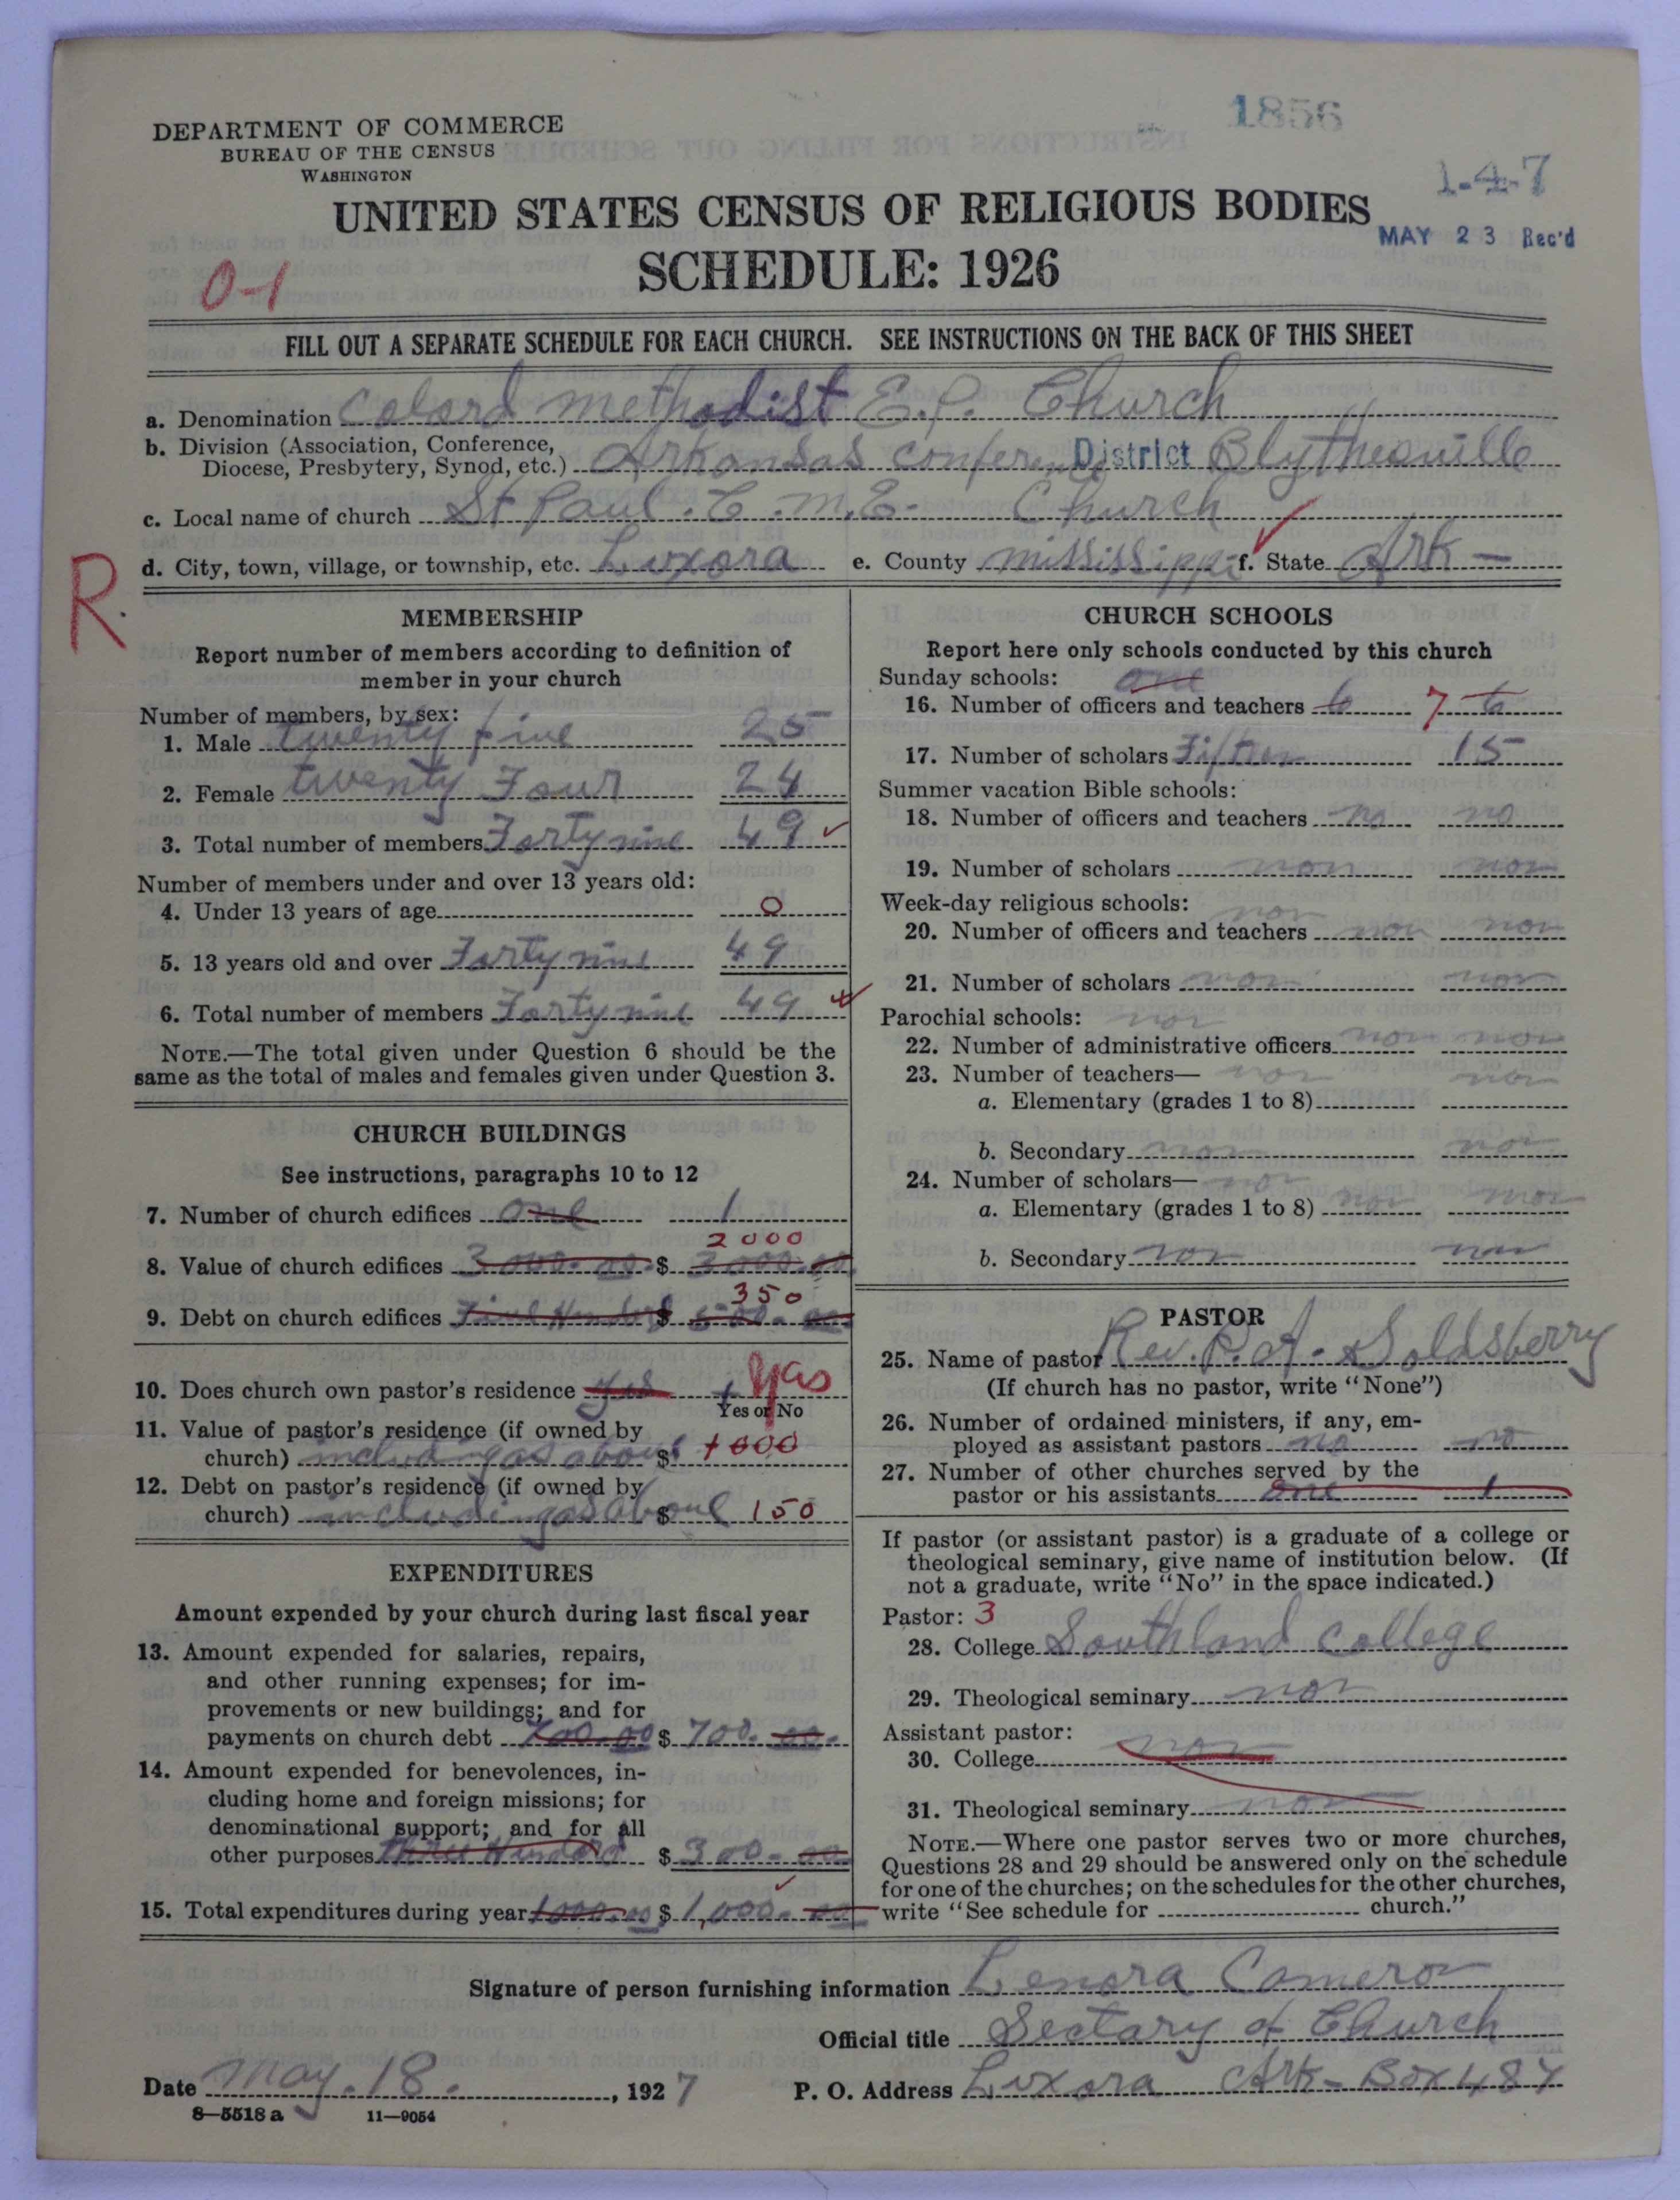 1856
DEPARTMENT OF COMMERCE
BUREAU OF THE CENSUS
WASHINGTON
1-4-7
UNITED STATES CENSUS OF RELIGIOUS BODIES
MAY 23 Rec'd
SCHEDULE: 1926
0-1
FILL OUT A SEPARATE SCHEDULE FOR EACH CHURCH. SEE INSTRUCTIONS ON THE BACK OF THIS SHEET
a. Denomination Colord methodist E.P. Church
b. Division (Association, Conference,
Diocese, Presbytery, Synod, etc.) Arkansas conference District Blythesville
c. Local name of church St Paul. C. M. E. Church
d. City, town, village, or township, etc. Luxora e. County mississippi f. State Ark –
R.
MEMBERSHIP
Report number of members according to definition of
member in your church
Number of members, by sex:
1. Male twenty five 25
2. Female twenty Four 24
3. Total number of members Forty nine 49
Number of members under and over 13 years old:
4. Under 13 years of age 0
5. 13 years old and over Forty nine 49
6. Total number of members Forty nine 49
NOTE.—The total given under Question 6 should be the
same as the total of males and females given under Question 3.
CHURCH BUILDINGS
See instructions, paragraphs 10 to 12
7. Number of church edifices one 1
2000
8. Value of church edifices 3000.00 $ 3000.00
350
9. Debt on church edifices Five Hunderd $ 500.00
10. Does church own pastor's residence yes Yas
Yes or No
11. Value of pastor's residence (if owned by
church) includingas above $ 1000
12. Debt on pastor's residence (if owned by
church) includingas above $ 150
EXPENDITURES
Amount expended by your church during last fiscal year
13. Amount expended for salaries, repairs,
and other running expenses; for im-
provements or new buildings; and for
payments on church debt 700.00 $ 700.00
14. Amount expended for benevolences, in-
cluding home and foreign missions; for
denominational support; and for all
other purposes three Hunderd $ 300.00
15. Total expenditures during year 1000.00 $ 1,000.00
CHURCH SCHOOLS
Report here only schools conducted by this church
Sunday schools: one
16. Number of officers and teachers 6 7 6
17. Number of scholars Fifteen 15
Summer vacation Bible schools:
18. Number of officers and teachers no no
19. Number of scholars non non
Week-day religious schools: non
20. Number of officers and teachers non non
21. Number of scholars non non
Parochial schools: non
22. Number of administrative officers non non
23. Number of teachers— non non
a. Elementary (grades 1 to 8)
b. Secondary non non
24. Number of scholars— non
a. Elementary (grades 1 to 8) non non
b. Secondary non non
PASTOR
25. Name of pastor Rev. P. A. Goldsberry
(If church has no pastor, write "None")
26. Number of ordained ministers, if any, em-
ployed as assistant pastors no no
27. Number of other churches served by the
pastor or his assistants one 1
If pastor (or assistant pastor) is a graduate of a college or
theological seminary, give name of institution below. (If
not a graduate, write "No" in the space indicated.)
Pastor: 3
28. College Southland College
29. Theological seminary non
Assistant pastor:
30. College non
31. Theological seminary non
NOTE.—Where one pastor serves two or more churches,
Questions 28 and 29 should be answered only on the schedule
for one of the churches; on the schedules for the other churches,
write "See schedule for church."
Signature of person furnishing information Lenora Cameron
Official title Sectary of Church
Date May. 18. , 1927 P. O. Address Luxora Ark – Box 487
8—5518 a 11—9054